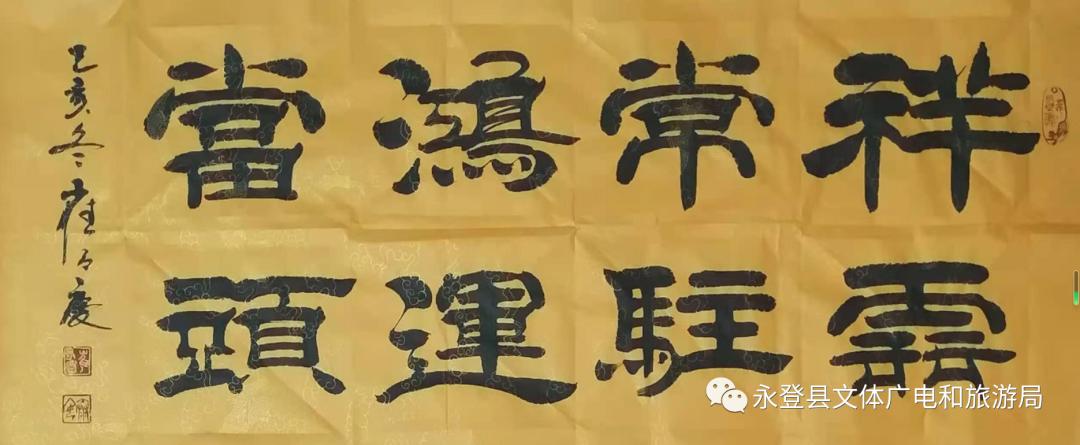 祥雲
常駐
鴻運
當頭
己亥冬
永登县文体广电和旅游局